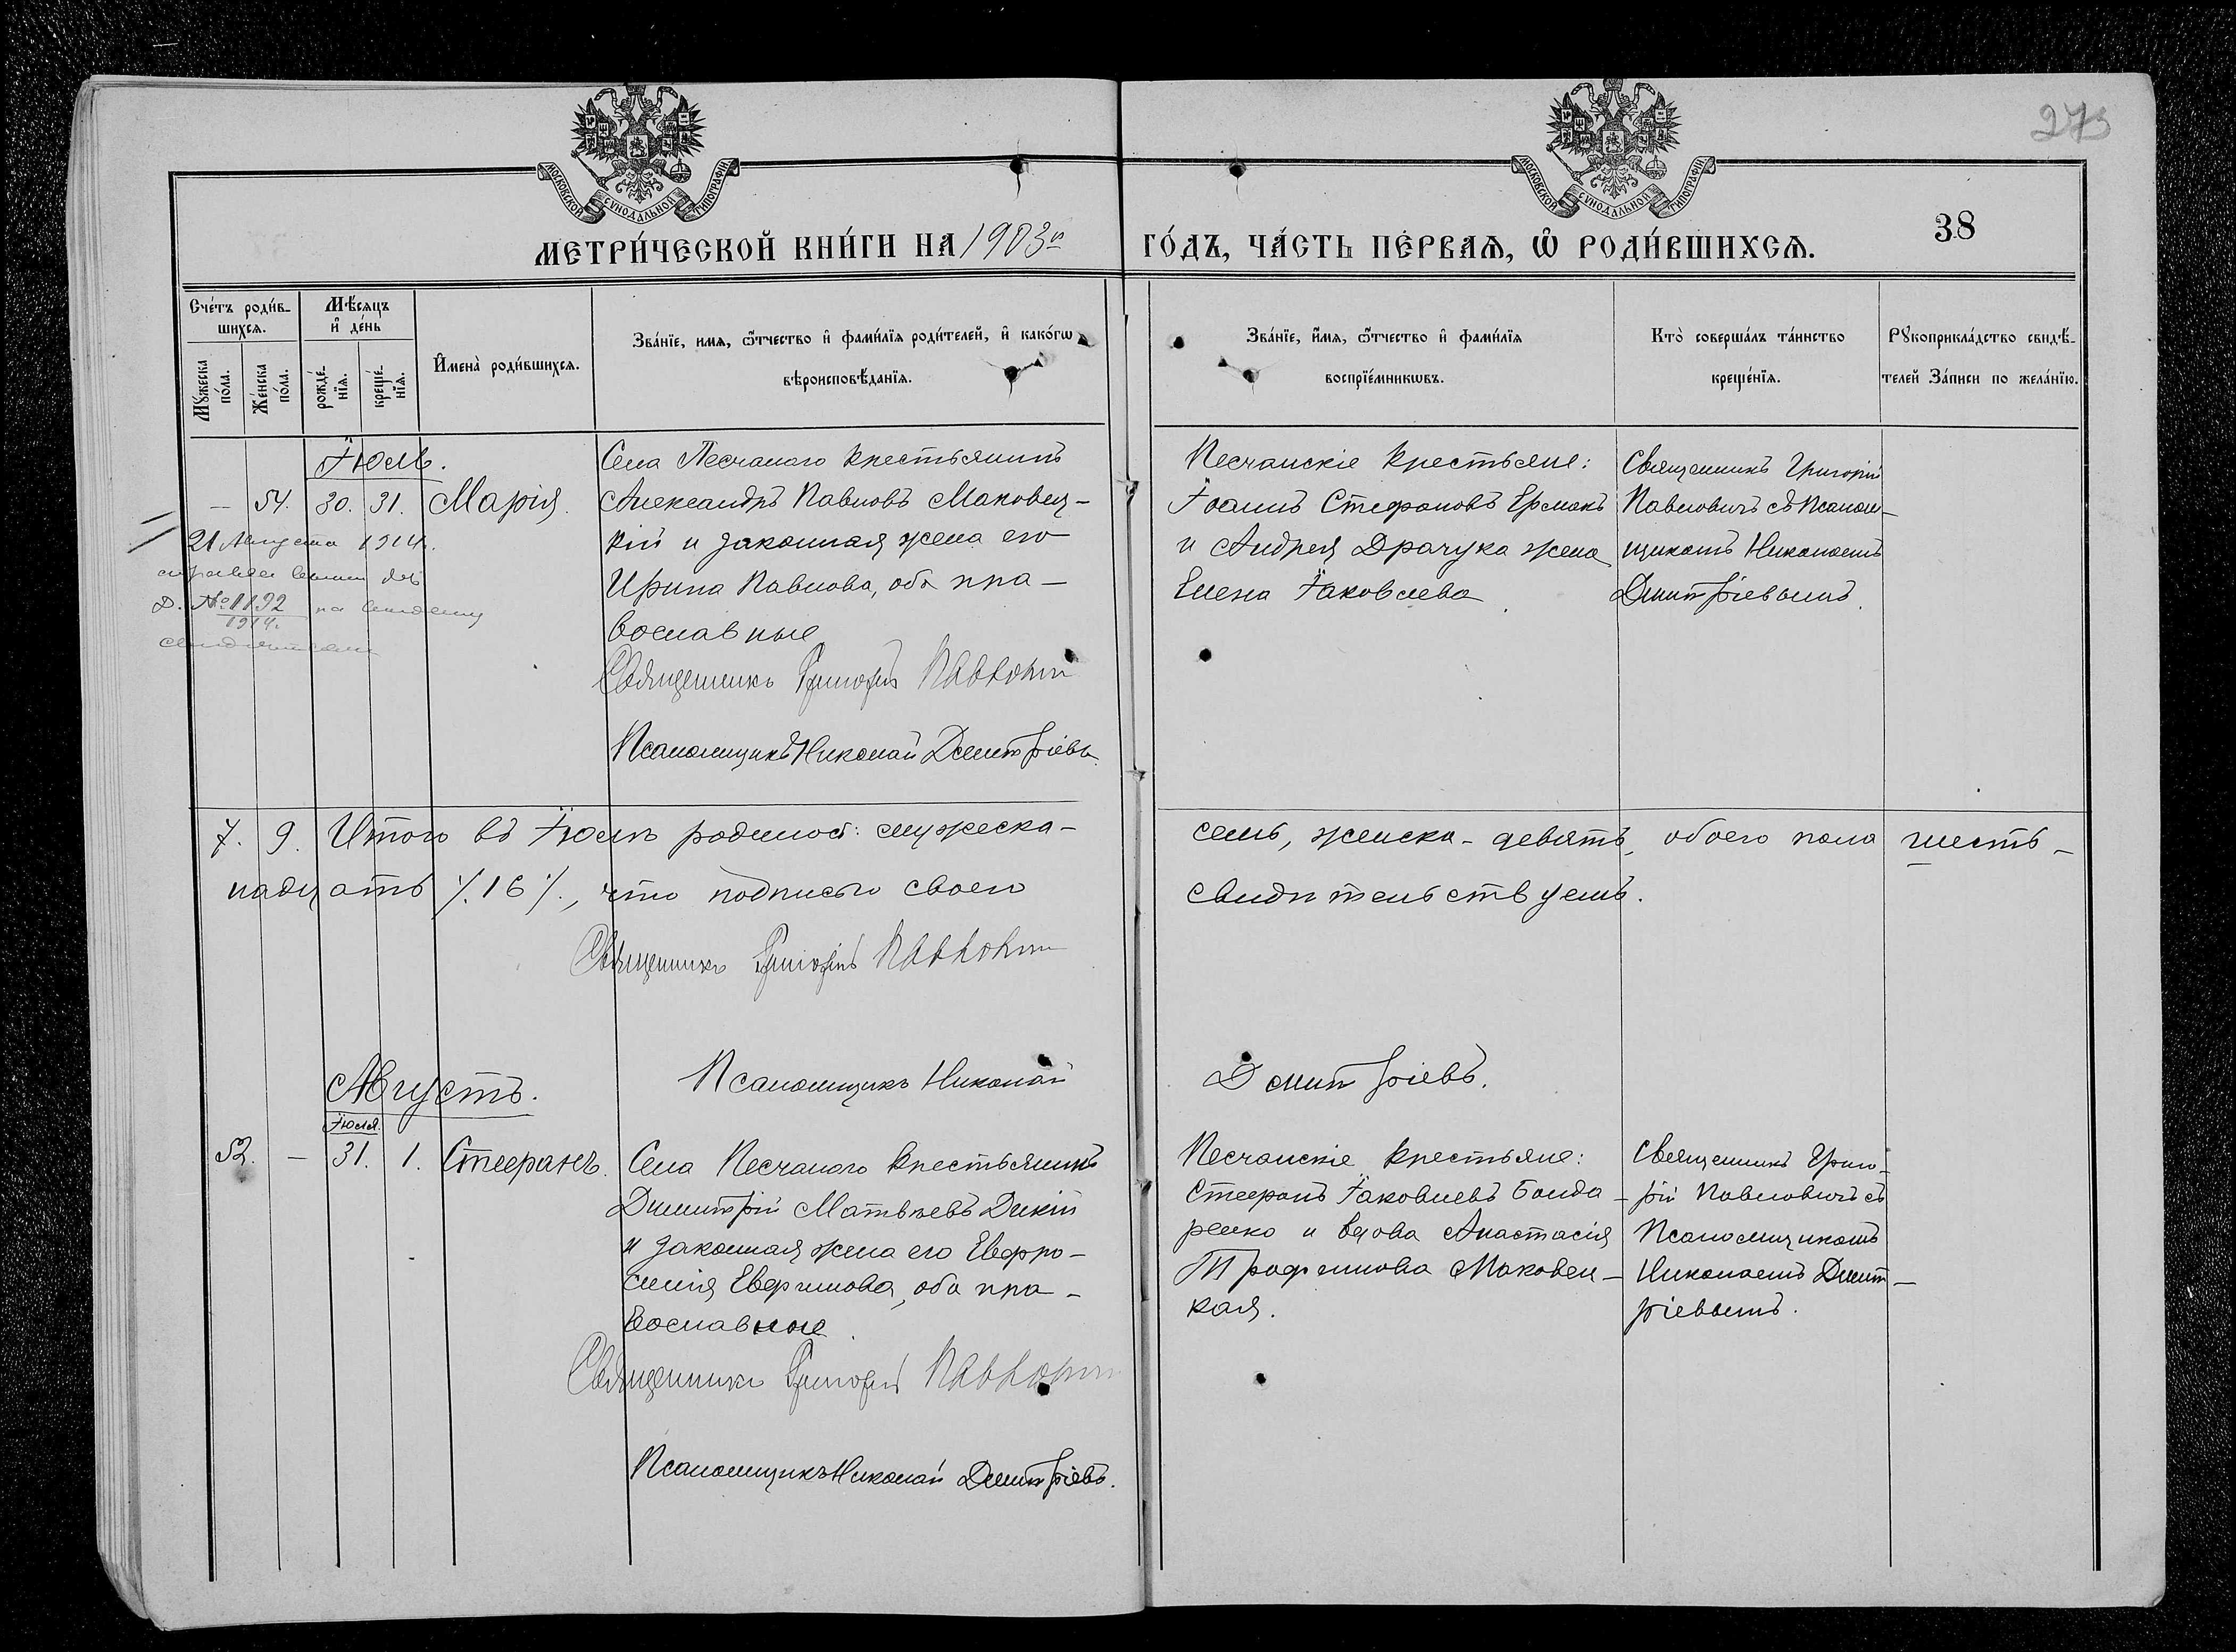 275
МОСКОВСКОЙ СѴНОДАЛЬНОЙ ТИПОГРАФІИ
МОСКОВСКОЙ СѴНОДАЛЬНОЙ ТИПОГРАФІИ
38
МЕТРИ́ЧЕСКОЙ КНИ́ГИ НА 1903й ГО́ДЪ, ЧА́СТЬ ПЕ́РВАѦ, Ѡ҆ РОДИ́ВШИХСѦ.
Сче́тъ роди́в-
шихсѧ.
Мѣ́сѧцъ
и҆ де́нь
Мꙋ́жеска
по́ла.
Же́нска
по́ла.
рожде́-
нїѧ.
креще́-
нїѧ.
И҆мена̀ роди́вшихсѧ.
Зва́нїе, имѧ, ѻ҆́тчество и҆ фами́лїѧ роди́телей, и҆ како́гѡ
вѣроисповѣ́данїѧ.
Зва́нїе, и҆́мѧ, ѻ҆́тчество и҆ фами́лїѧ
воспрїе́мникѡвъ.
Кто̀ соверша́лъ та́инство
креще́нїѧ.
Рꙋкоприкла́дство свидѣ́-
телей За́писи по жела́нїю.
Іюль.
— 54. 30. 31. Марія.
Села Песчаного крестьянинъ
Александръ Павловъ Маковец-
кій и законная жена его
Ирина Павлова, оба пра-
вославные
Священникъ Григорій Павлович
Псаломщикъ Николай Дмитріевъ
Песчанскіе крестьяне:
Іоаннъ Стефановъ Ермакъ
и Андрея Драчука жена
Елена Іаковлева
Священникъ Григорій
Павловичъ съ Псалом-
щикомъ Николаемъ
Дмитріевымъ.
21 Августа 1914.
Д. № 1192
1914.
7. 9. Итого въ Іюлѣ родилось: мужеска- семь, женска- девять, обоего пола шесть-
надцать /. 16 /., что подписью своею свидѣтельствуемъ.
Священникъ Григорій Павлович
Псаломщикъ Николай Дмитріевъ.
Августъ.
Іюля.
52. — 31. 1. Стефанъ.
Села Песчаного крестьянинъ
Димитрій Матвѣевъ Дикій
и законная жена его Евфро-
синія Евфимова, оба пра-
вославные
Священникъ Григорій Павлович
Псаломщикъ Николай Дмитріевъ.
Песчанскіе крестьяне:
Стефанъ Іаковлевъ Бонда-
ренко и вдова Анастасія
Трофимова Маковец-
кая.
Священникъ Григо-
рій Павловичъ съ
Псаломщикомъ
Николаемъ Дмит-
ріевымъ.